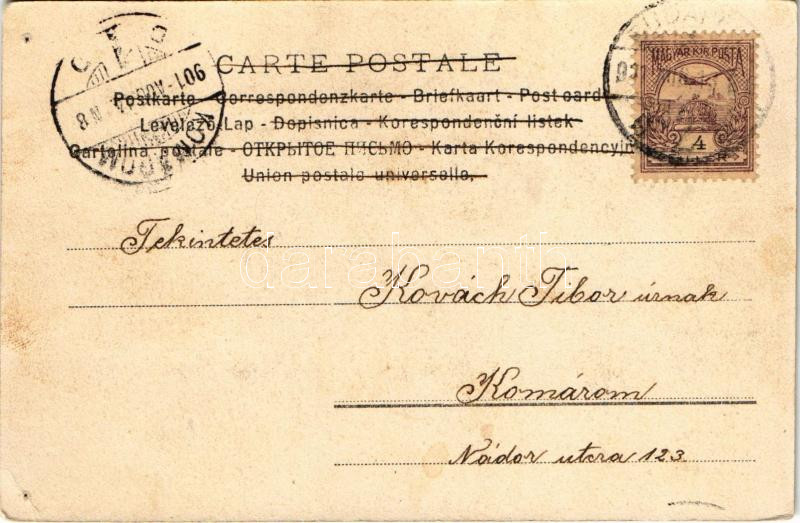 CARTE POSTALE
Postkarte - Correspondenzkarte - Briefkaart - Postcard
Levelező-Lap - Dopisnica - Korespondenční listek
Cartolina postale - ОТКРЫТОЕ ПИСЬМО - Karta Korespondencyjn
Union postale universelle.
MAGYAR KIR. POSTA
4
KOMÁROM
901
darabanth
Tekintetes
Kovách Tibor úrnak
Komárom
Nádor utcza 123